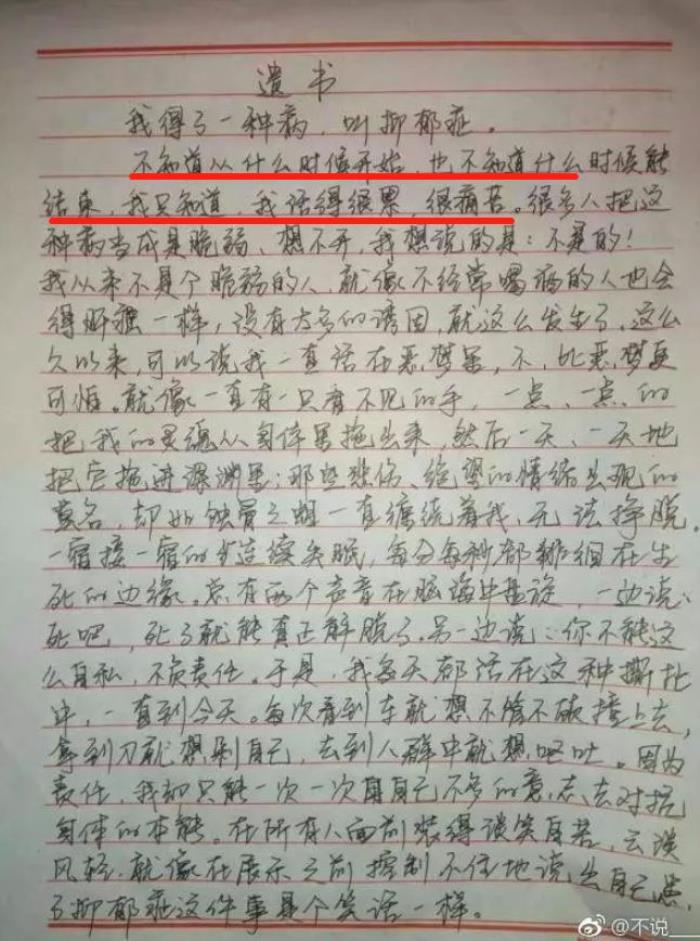 遗书
我得了一种病，叫抑郁症。
不知道从什么时候开始，也不知道什么时候能
结束，我只知道，我活得很累，很痛苦。很多人把这
种病当成是脆弱、想不开，我想说的是：不是的！
我从来不是个脆弱的人，就像不经常喝酒的人也会
得肝癌一样，没有太多的诱因，就这么发生了。这么
久以来，可以说我一直活在恶梦里，不，比恶梦更
可怕。就像一直有一只看不见的手，一点、一点的
把我的灵魂从身体里拖出来，然后一天、一天地
把它拖进深渊里；那些悲伤、绝望的情绪出现的
莫名，却如蚀骨之蛆一直缠绕着我，无法挣脱。
一宿接一宿的连续失眠，每分每秒都徘徊在生
死的边缘。总有两个声音在脑海中盘旋，一边说：
死吧，死了就能真正解脱了。另一边说：你不能这
么自私，不负责任。于是，我每天都活在这种撕扯
中，一直到今天。每次看到车就想不管不顾撞上去，
拿到刀就想剁自己，去到人群中就想呕吐。因为
责任，我却只能一次一次用自己不多的意志去对抗
身体的本能。在所有人面前装得谈笑自若，云淡
风轻，就像在展示之前控制不住地说出自己患
了抑郁症这件事是个笑话一样。
@不说